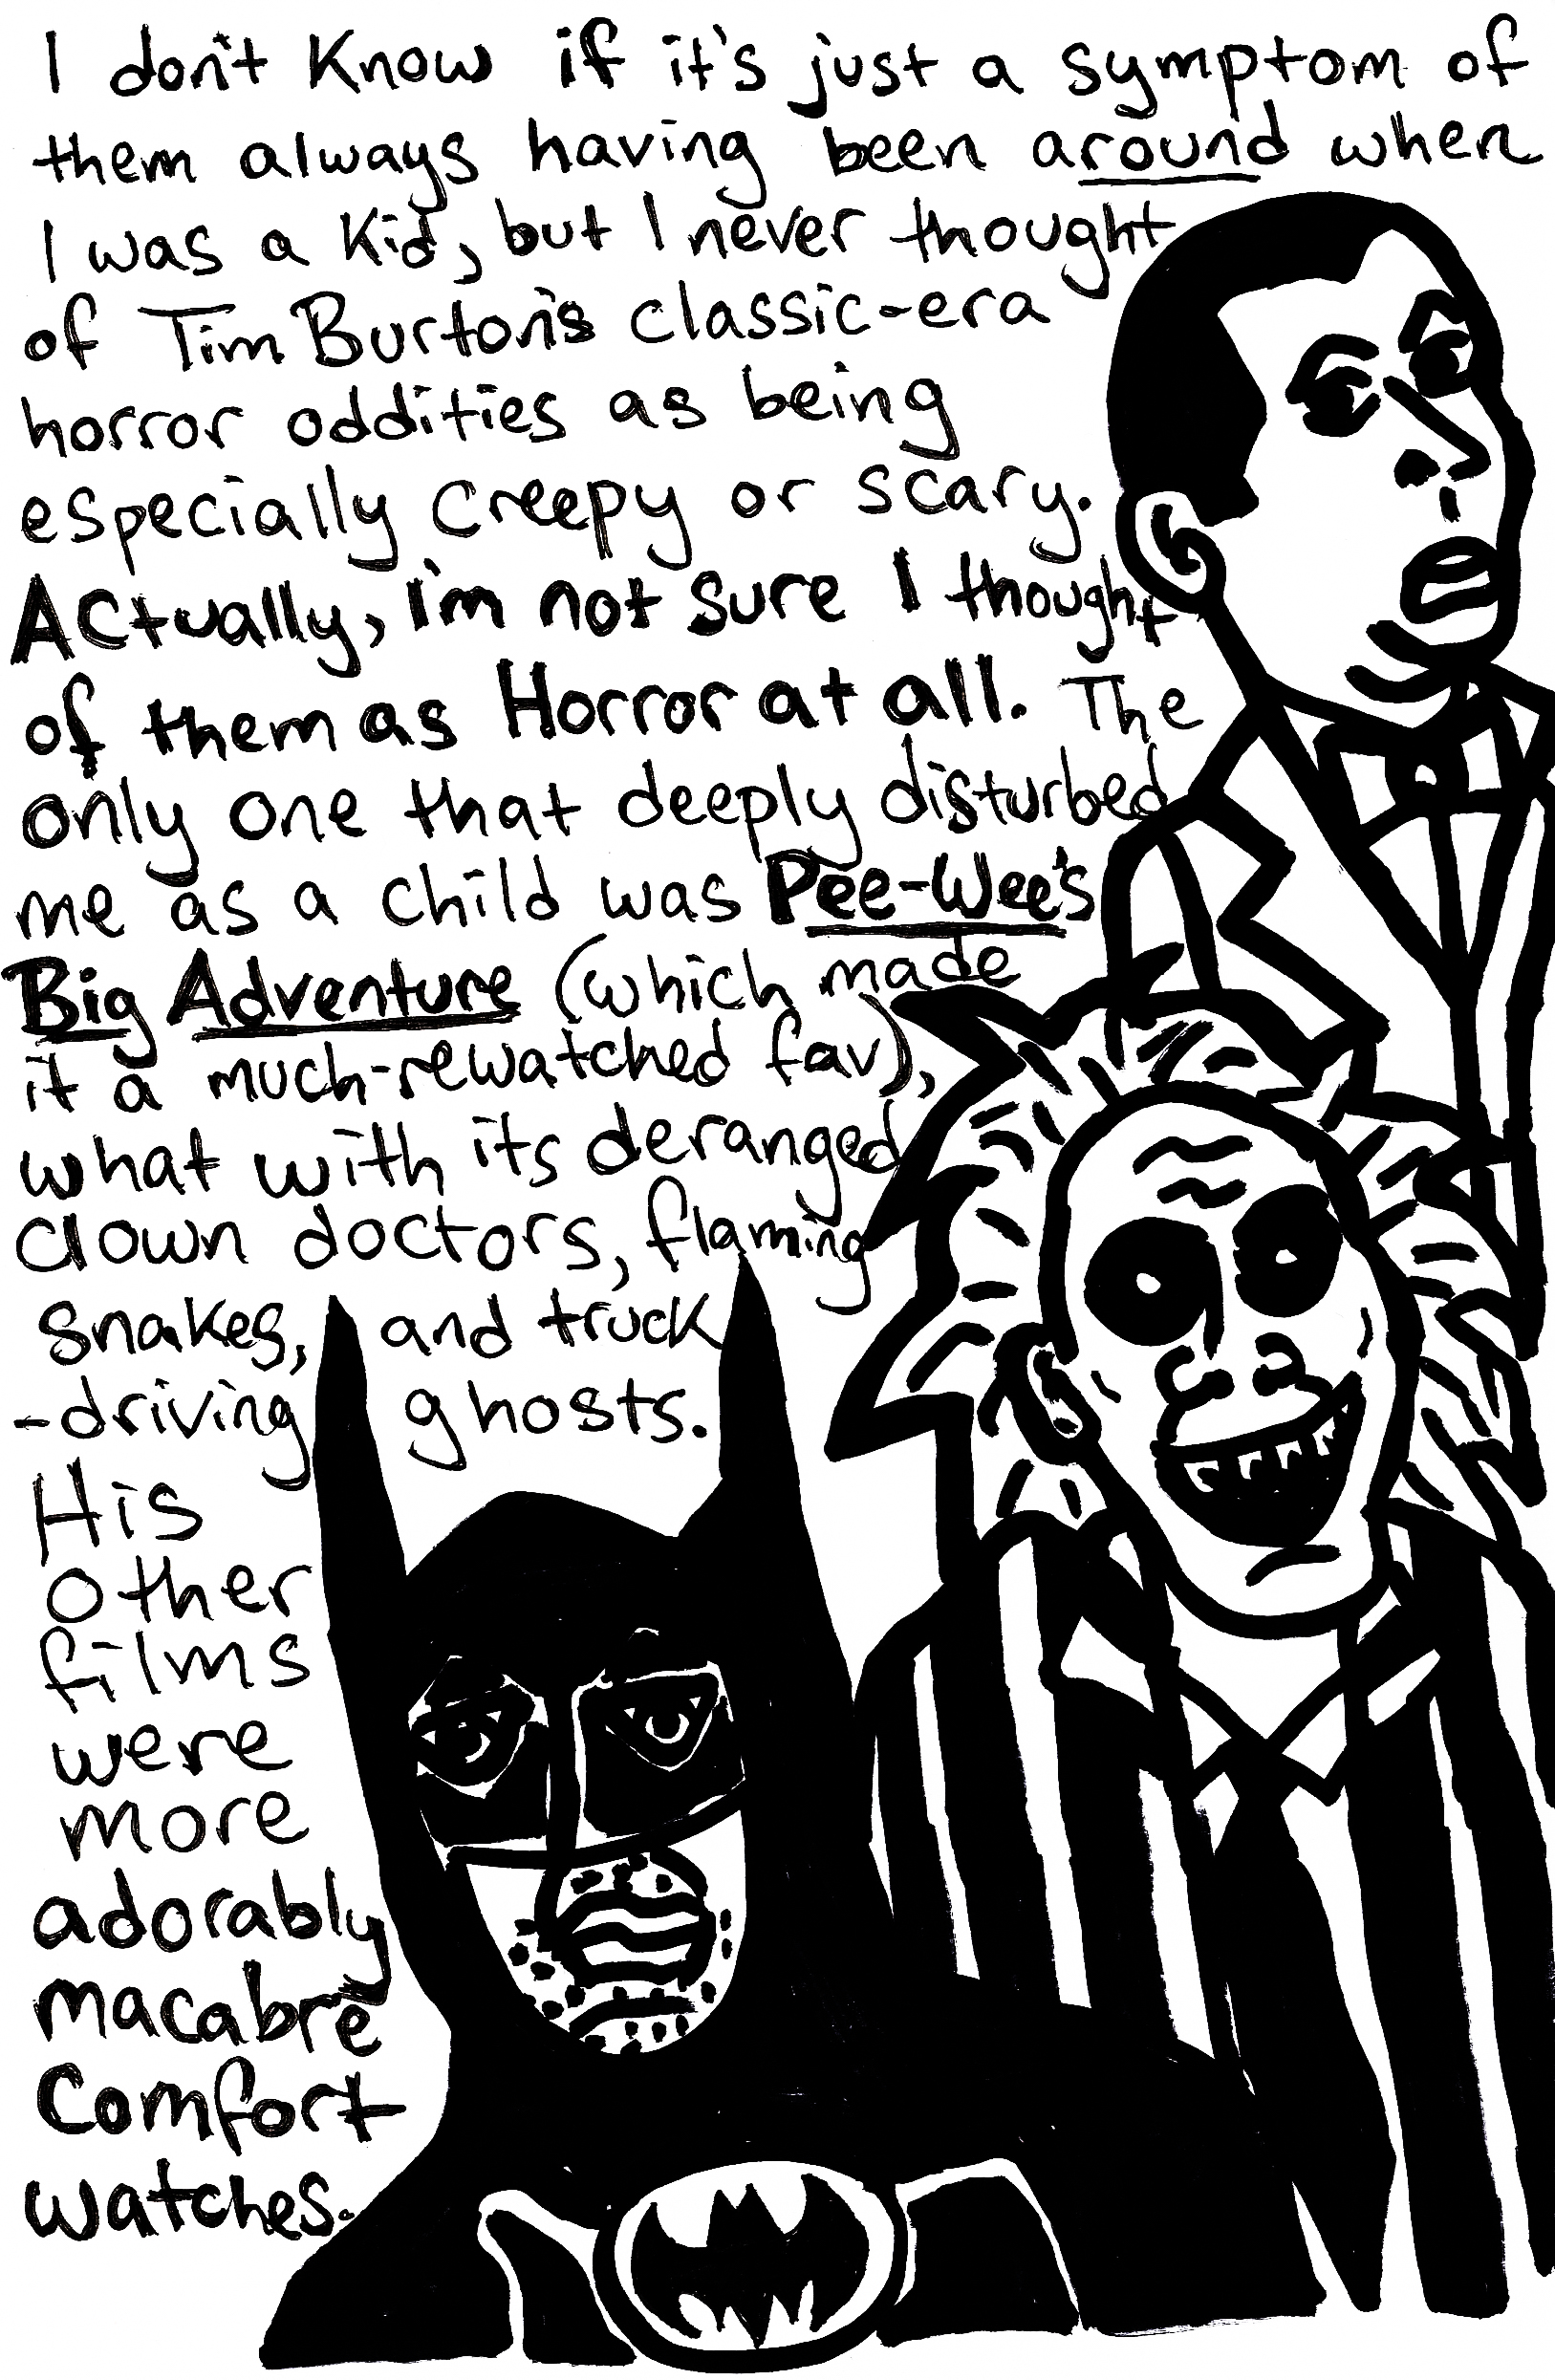 I don't know if it's just a symptom of
them always having been around when
I was a kid, but I never thought
of Tim Burton's classic-era
horror oddities as being
especially creepy or scary.
Actually, I'm not sure I thought
of them as Horror at all. The
only one that deeply disturbed
me as a child was Pee-Wee's
Big Adventure (which made
it a much-rewatched fav),
what with its deranged
clown doctors, flaming
snakes, and truck
-driving ghosts.
His
other
films
were
more
adorably
macabre
comfort
watches.